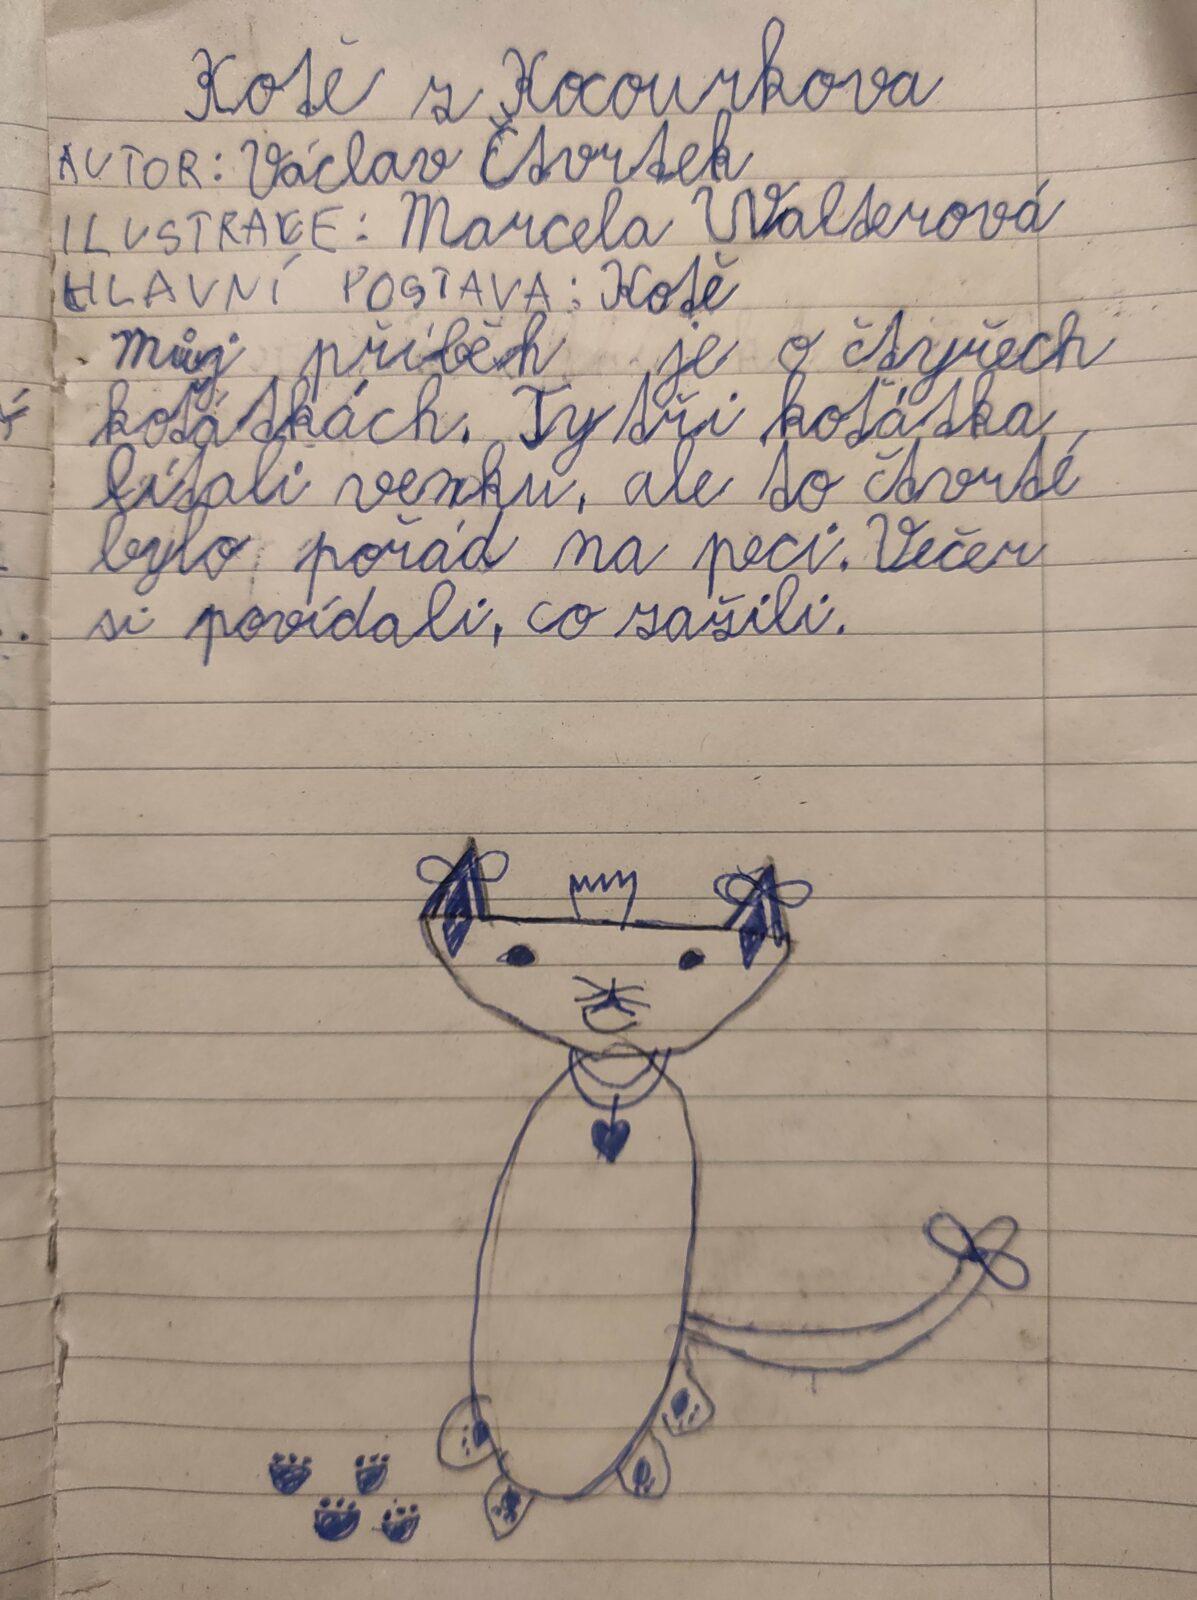 Kotě z Kocourkova
AUTOR: Václav Čtvrtek
ILUSTRAKE: Marcela Walterová
HLAVNÍ POSTAVA: Kotě
můj příběh je o čtyřech
koťátkách. Ty tři koťátka
lítali venku, ale to čtvrté
bylo pořád na peci. Večer
si povídali, co zažili.